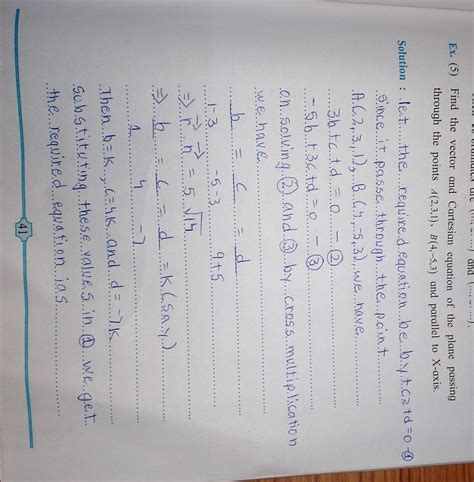 and (........)
Ex. (5) Find the vector and Cartesian equation of the plane passing
through the points A(2,3,1), B(4,-5,3) and parallel to X-axis.
Solution : let the required equation be by+cz+d=0-①
since it passe through the point
A(2,3,1), B(4,-5,3) we have
3b+c+d=0 - ②
-5b+3c+d=0 - ③
on solving ② and ③ by cross multiplication
we have
b = c = d
1-3 -5-3 9+5
⇒ r⃗ . n⃗ = 5√14
⇒ b = c = d = k (say)
1 4 -7
Then b=k, c=4k and d=-7k
Substituting these values in ① we get
the required equation ias
41